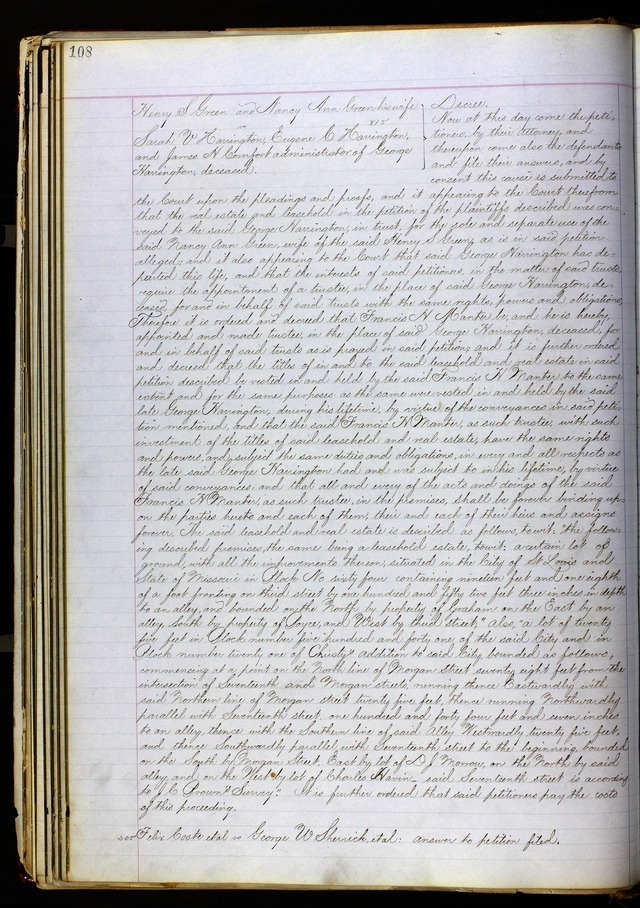 108
Henry S Green and Nancy Ann Green his wife
vs
Sarah V Harrington, Eugene C Harrington,
and James H Comfort administrator of George
Harrington, deceased.
Decree.
Now at this day come the peti-
tioners, by their attorney, and
thereupon come also the defendants
and file their answers, and by
consent this cause is submitted to
the Court upon the pleadings and proofs, and it appearing to the Court therefrom
that the real estate and leasehold in the petition of the plaintiffs described was con-
veyed to the said George Harrington, in trust, for the sole and separate use of the
said Nancy Ann Green, wife of the said Henry S Green, as is in said petition
alleged, and it also appearing to the Court that said George Harrington has de-
parted this life, and that the interests of said petitioners, in the matter of said trusts,
require the appointment of a trustee, in the place of said George Harrington, de-
ceased, for and in behalf of said trusts with the same rights, powers and obligations,
Therefore it is ordered and decreed that Francis H Manter be, and he is hereby,
appointed and made trustee, in the place of said George Harrington, deceased, for
and in behalf of said trusts as is prayed in said petition; and it is further ordered
and decreed that the title of in and to the said leasehold and real estate in said
petition described be vested in and held by the said Francis H Manter to the same
extent and for the same purposes as the same were vested in and held by the said
late George Harrington, during his lifetime, by virtue of the conveyances in said peti-
tion mentioned, and that the said Francis H Manter, as such trustee, with such
investment of the titles of said leasehold and real estate, have the same rights
and powers, and, subject the same duties and obligations, in every and all respects as
the late said George Harrington had and was subject to in his lifetime, by virtue
of said conveyances and that all and every of the acts and doings of the said
Francis H Manter, as such trustee, in the premises, shall be forever binding up-
on the parties hereto and each of them, their and each of their heirs and assigns
forever. The said leasehold and real estate is described as follows, to wit: "the follow-
ing described premises, the same being a leasehold estate, to wit: a certain lot of
ground, with all the improvements thereon, situated in the City of St Louis and
State of Missouri in Block No sixty four containing nineteen feet and one eighth
of a foot fronting on third street by one hundred and fifty two feet three inches in depth
to an alley, and bounded on the North, by property of Graham on the East by an
alley, South by property of Joyce, and West by third street," also, "a lot of twenty
five feet in Block number five hundred and forty one of the said City and in
Block number twenty one of Christy's addition to said City, bounded as follows,
commencing at a point on the North line of Morgan street seventy eight feet from the
intersection of Seventeenth and Morgan streets, running thence Eastwardly with
said Northern line of Morgan street twenty five feet, thence running Northwardly
parallel with Seventeenth street, one hundred and forty four feet and seven inches
to an alley, thence with the Southern line of said Alley Westwardly twenty five feet,
and thence Southwardly parallel with Seventeenth street to the beginning, bounded
on the South by Morgan Street, East by lot of D J Morrow, on the North by said
alley, and on the West by lot of Charles Havin said Seventeenth street is according
to J C Brown's Survey." It is further ordered that said petitioners pay the costs
of this proceeding.
Felix Coste et al vs George W Sherrick, et al: answer to petition filed.